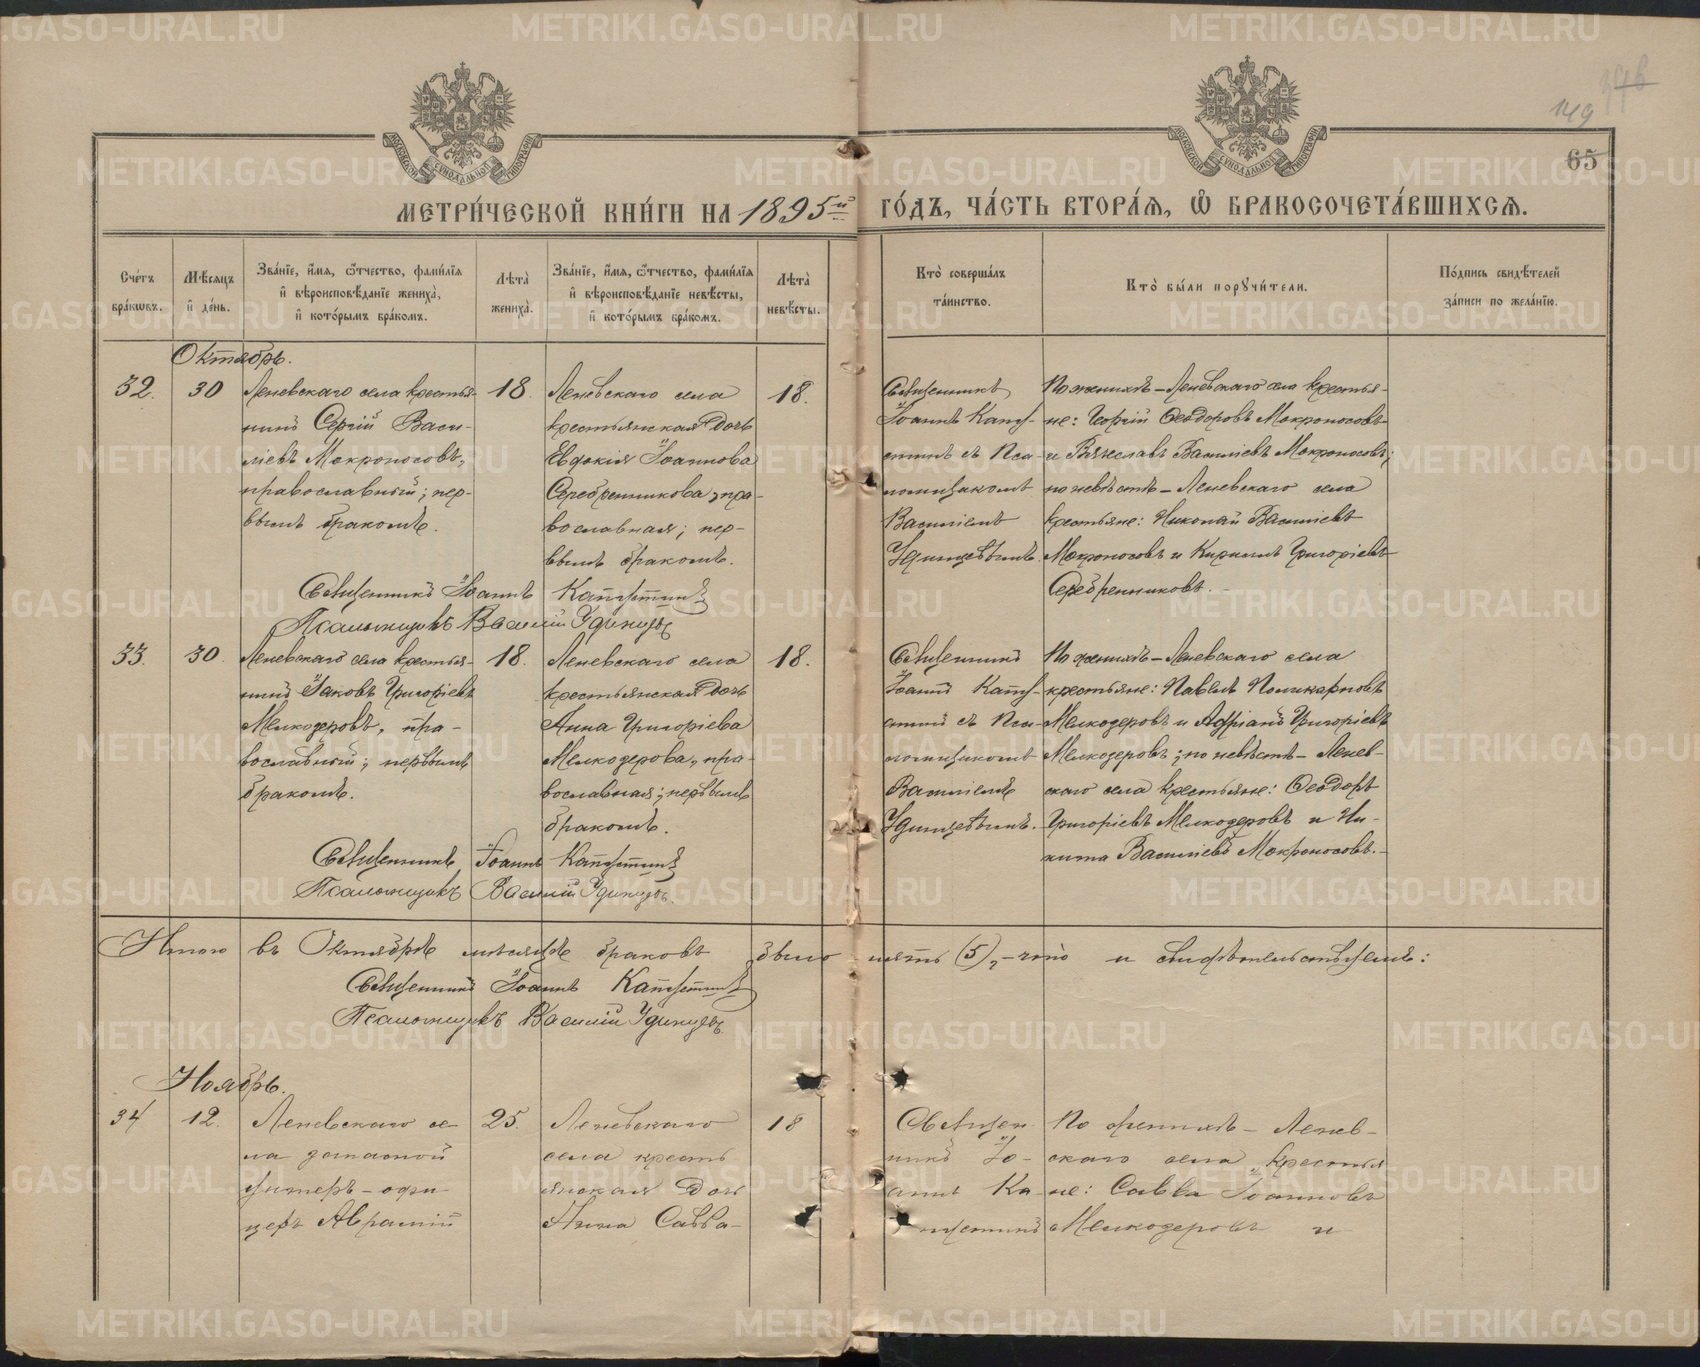 METRIKI.GASO-URAL.RU
149
65
МОСКОВСКОЙ СѴНОДАЛЬНОЙ ТИПОГРАФІИ
МОСКОВСКОЙ СѴНОДАЛЬНОЙ ТИПОГРАФІИ
МЕТРИ́ЧЕСКОЙ КНИ́ГИ НА 1895й ГО́ДЪ, ЧА́СТЬ ВТОРА́Ѧ, Ѽ БРАКОСОЧЕТА́ВШИХСѦ.
Сче́тъ бра́кѡвъ.
Мѣ́сѧцъ и҆ де́нь.
Зва́нїе, и҆́мѧ, ѻ҆́тчество, фами́лїѧ и҆ вѣроисповѣ́данїе жениха̀, и҆ кото́рымъ бра́комъ.
Лѣта̀ жениха̀.
Зва́нїе, и҆́мѧ, ѻ҆́тчество, фами́лїѧ и҆ вѣроисповѣ́данїе невѣ́сты, и҆ кото́рымъ бра́комъ.
Лѣта̀ невѣ́сты.
Кто̀ соверша́лъ та́инство.
Кто̀ бы́ли порꙋчи́тели.
По́дпись свидѣ́телей за́писи по жела́нїю.
Октябрь.
32.
30
Леневскаго села крестья-
нинъ Сергій Васи-
ліевъ Мокроносовъ,
православный; пер-
вымъ бракомъ.
18.
Леневскаго села
крестьянская дочь
Евдокія Іоаннова
Серебренникова, пра-
вославная; пер-
вымъ бракомъ.
18.
Священникъ
Іоаннъ Капу-
стинъ съ Пса-
ломщикомъ
Василіемъ
Удинцевымъ.
По женихѣ – Леневскаго села крестья-
не: Георгій Ѳеодоровъ Мокроносовъ
и Вячеславъ Василіевъ Мокроносовъ;
по невѣстѣ – Леневскаго села
крестьяне: Николай Василіевъ
Мокроносовъ и Кириллъ Григоріевъ
Серебренниковъ.
Священникъ Іоаннъ Капустинъ
Псаломщикъ Василій Удинцевъ
33.
30.
Леневскаго села крестья-
нинъ Іаковъ Григоріевъ
Мелкозеровъ, пра-
вославный; первымъ
бракомъ.
18.
Леневскаго села
крестьянская дочь
Анна Григоріева
Мелкозерова, пра-
вославная; первымъ
бракомъ.
18.
Священникъ
Іоаннъ Капу-
стинъ съ Пса-
ломщикомъ
Василіемъ
Удинцевымъ.
По женихѣ – Леневскаго села
крестьяне: Павелъ Поликарповъ
Мелкозеровъ и Адріанъ Григоріевъ
Мелкозеровъ; по невѣстѣ – Ленев-
скаго села крестьяне: Ѳеодоръ
Григоріевъ Мелкозеровъ и Ни-
кита Василіевъ Мокроносовъ.
Священникъ Іоаннъ Капустинъ
Псаломщикъ Василій Удинцевъ.
Итого въ Октябрѣ мѣсяцѣ браковъ было пять (5), – что и свидѣтельствуемъ:
Священникъ Іоаннъ Капустинъ
Псаломщикъ Василій Удинцевъ.
Ноябрь.
34
12.
Леневскаго се-
ла запасной
унтеръ-офи-
церъ Аврамій
25.
Леневскаго
села кресть
янская дочь
Анна Савва-
18
Священ
никъ Іо-
аннъ Ка-
пустинъ
По женихѣ – Ленев-
скаго села крестья
не: Савва Іоанновъ
Мелкозеровъ и